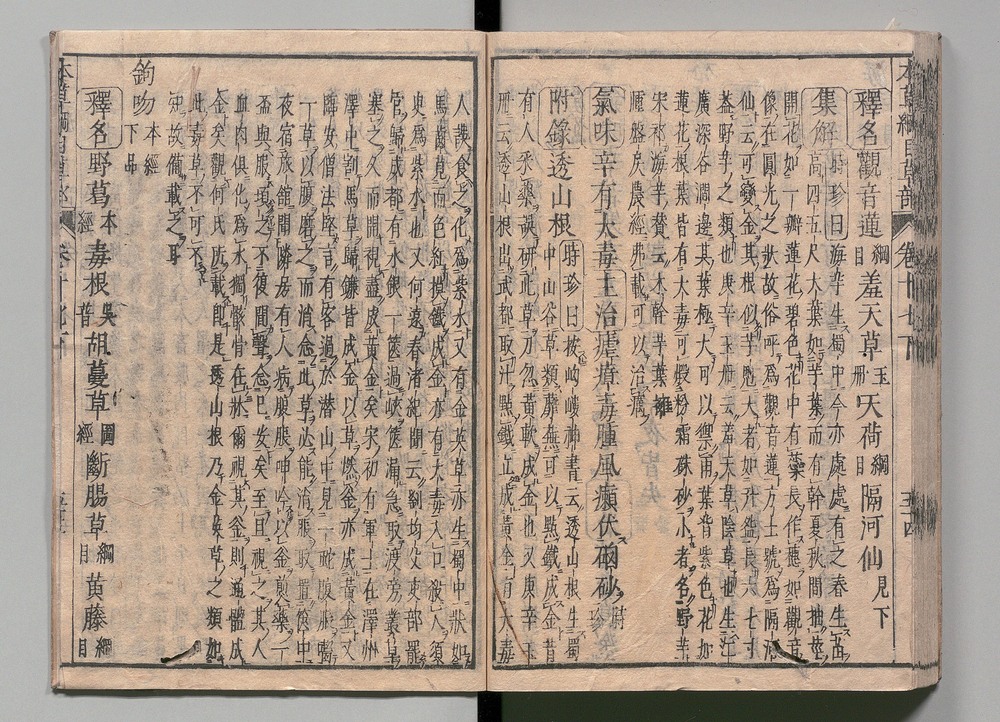 釋名觀音蓮綱目羞天草玉冊天荷綱目隔河仙見下
集解時珍曰海芋生蜀中今亦處處有之春生苗
高四五尺大葉如芋葉而有幹夏秋間抽莖
開花如一瓣蓮花碧色花中有蕊長作穗如觀音
像在圓光之狀故俗呼為觀音蓮方士號為隔河
仙云可變金其根似芋魁大者如升盌長六七寸
蓋野芋之類也庚辛玉冊云羞天草陰草也生江
廣深谷澗邊其葉極大可以禦雨葉背紫色花如
蓮花根葉皆有大毒可煅粉霜硃砂小者名野芋
宋祁海芋贊云木幹芋葉
擁腫盤戾農經弗載可以治癘
氣味辛有大毒主治瘧瘴毒腫風癩伏砒砂時珍
附錄透山根時珍曰按岣嶁神書云透山根生蜀
中山谷草類蘼蕪可以點鐵成金昔
有人采藥誤斫此草刀忽黃軟成金也又庚辛玉
冊云透山根出武都取汁點鐵立成黃金有大毒
人誤食之化為紫水又有金英草亦生蜀中狀如
馬齒莧而色紅模鐵成金亦有大毒入口殺人須
臾為紫水也又何薳春渚紀聞云劉均父吏部罷
官歸成都有水銀一篋過峽篋漏急取渡旁叢草
塞之久而開視盡成黃金矣宋初有軍士在澤州
澤中割馬草歸鎌皆成金以草然釜亦成黃金又
臨安僧法堅言有客過於潛山中見一蛇腹脹
一草以腹磨之而消念此草必能消脹取置篋中
夜宿旅館聞鄰房有人病腹脹呻吟以釜煎藥一
盃與服頃之不復聞聲念已安矣至旦視之其人
血肉俱化為水獨骸骨在牀爾視其釜則通體成
金矣觀何氏所載即是透山根乃金英草之類如
此毒草不可不
知故備載之耳
鉤吻本經下品
釋名野葛本經毒根吳普胡蔓草圖經斷腸草綱目黃藤綱目